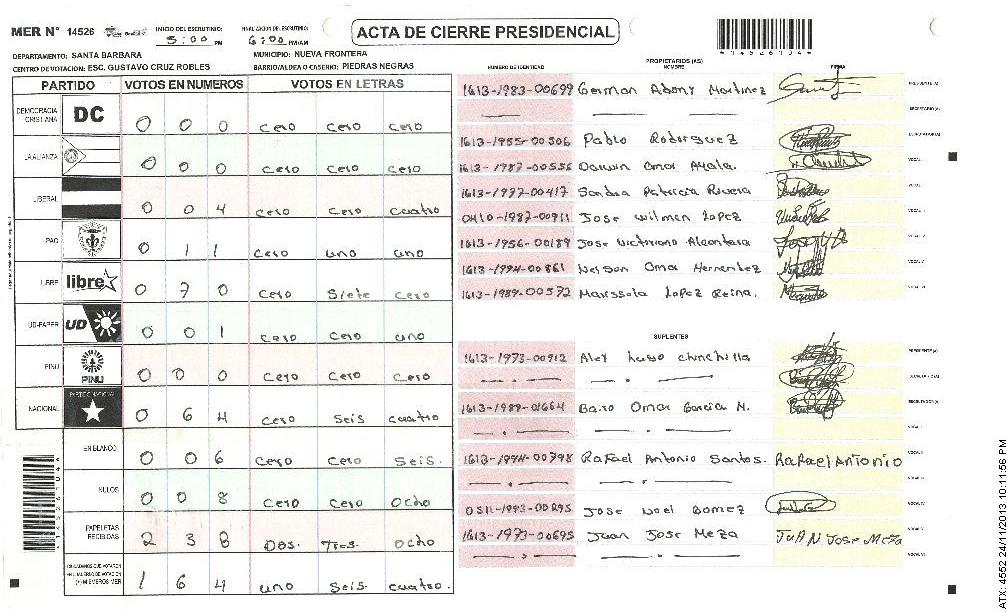 MER N° 14526 INICIO DEL ESCRUTINIO: 5:00 PM FINALIZACION DEL ESCRUTINIO: 6:00 PM/AM ACTA DE CIERRE PRESIDENCIAL
DEPARTAMENTO: SANTA BARBARA MUNICIPIO: NUEVA FRONTERA
CENTRO DE VOTACION: ESC. GUSTAVO CRUZ ROBLES BARRIO/ALDEA O CASERIO: PIEDRAS NEGRAS
PARTIDO VOTOS EN NUMEROS VOTOS EN LETRAS
DEMOCRACIA CRISTIANA DC 0 0 0 cero cero cero
LA ALIANZA 0 0 0 cero cero cero
LIBERAL 0 0 4 cero cero cuatro
PAC 0 1 1 cero uno uno
LIBRE libre 0 7 0 cero Siete cero
UD-FAPER UD 0 0 1 cero cero uno
PINU PINU 0 0 0 cero cero cero
NACIONAL PARTIDO NACIONAL 0 6 4 cero seis cuatro
EN BLANCO 0 0 6 cero cero seis.
NULOS 0 0 8 cero cero ocho
PAPELETAS RECIBIDAS 2 3 8 Dos. Tres. ocho
CIUDADANOS QUE VOTARON
(+) MIEMBROS MER 1 6 4 uno seis. cuatro.
NUMERO DE IDENTIDAD PROPIETARIOS (AS) NOMBRE FIRMA
1613-1983-00699 German Adony Martinez PRESIDENTE (A)
SECRETARIO (A)
1613-1955-00506 Pablo Rodriguez ESCRUTADOR (A)
1613-1987-00556 Darwin Omar Ayala. VOCAL I
1613-1997-00417 Sandra Patricia Rivera VOCAL II
0410-1987-00911 Jose Wilmen Lopez VOCAL III
1613-1956-00189 Jose Victoriano Alcantara VOCAL IV
1613-1994-00861 Nelson Omar Hernandez VOCAL V
1613-1989-00572 Marissela Lopez Reina. VOCAL VI
SUPLENTES
1613-1973-00912 Alex Lugo chinchilla PRESIDENTE (A)
SECRETARIO (A)
1613-1989-01664 Bairo Omar Garcia N. ESCRUTADOR (A)
VOCAL I
1613-1994-00798 Rafael Antonio Santos. Rafael ANTONIO VOCAL II
VOCAL III
0511-1993-00295 Jose Noel Gomez VOCAL IV
1613-1973-00695 Juan Jose Meza JUAN JOSE Meza VOCAL V
VOCAL VI
14526104
ATX: 4552 24/11/2013 10:11:56 PM